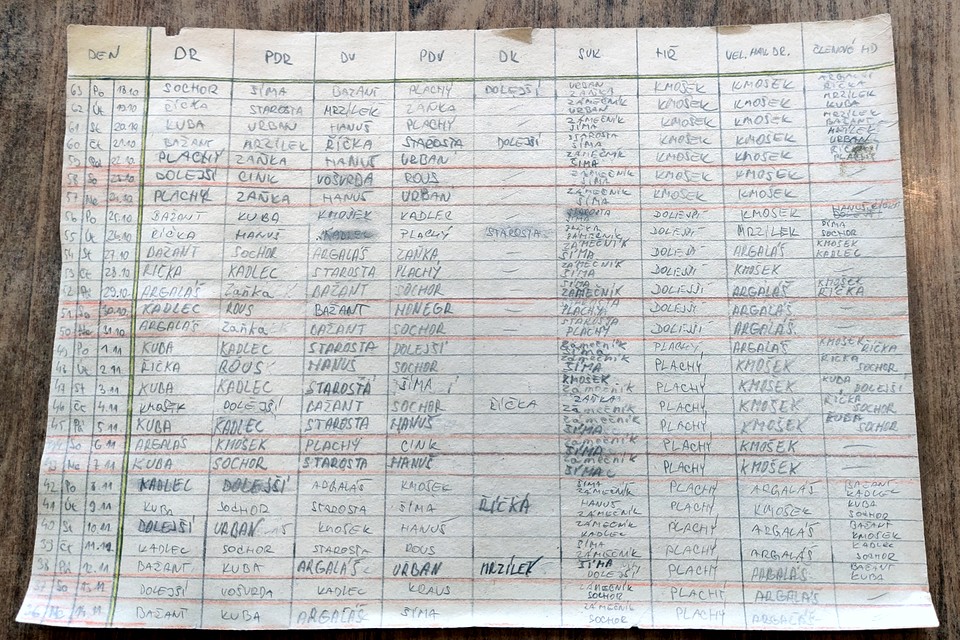 DEN DR PDR DV PDV DK SVK HŘ VEL. HAV. DR. ČLENOVÉ HD
63 Po 18.10 SOCHOR ŠÍMA BAŽANT PLACHÝ DOLEJŠÍ URBAN ZAŇKA KMOŠEK KMOŠEK ARGALÁŠ ŘÍČKA
62 Út 19.10 ŘÍČKA STAROSTA MRZÍLEK ZAŇKA — ZÁMEČNÍK URBAN KMOŠEK KMOŠEK MRZÍLEK KUBA
61 St 20.10 KUBA URBAN HANUŠ PLACHÝ — ZÁMEČNÍK ŠÍMA KMOŠEK KMOŠEK MRZÍLEK BAŽANT
60 Čt 21.10 BAŽANT MRZÍLEK ŘÍČKA STAROSTA DOLEJŠÍ STAROSTA ŠÍMA KMOŠEK KMOŠEK MRZÍLEK URBAN
59 Pá 22.10 PLACHÝ ZAŇKA HANUŠ URBAN — ZÁMEČNÍK ŠÍMA KMOŠEK KMOŠEK
58 So 23.10 DOLEJŠÍ CINK VOŠVRDA ROUS — ZÁMEČNÍK ŠÍMA KMOŠEK KMOŠEK —
57 Ne 24.10 PLACHÝ ZAŇKA HANUŠ URBAN — ZÁMEČNÍK ŠÍMA KMOŠEK KMOŠEK —
56 Po 25.10 BAŽANT KUBA KMOŠEK KADLEC — DOLEJŠÍ KMOŠEK HANUŠ
55 Út 26.10 ŘÍČKA HANUŠ KADLEC PLACHÝ STAROSTA ZÁMEČNÍK DOLEJŠÍ MRZÍLEK ŠÍMA SOCHOR
54 St 27.10 BAŽANT SOCHOR ARGALÁŠ ZAŇKA — ZÁMEČNÍK ŠÍMA DOLEJŠÍ ARGALÁŠ KMOŠEK KADLEC
53 Čt 28.10 ŘÍČKA KADLEC STAROSTA PLACHÝ — ZÁMEČNÍK ŠÍMA DOLEJŠÍ KMOŠEK —
52 Pá 29.10 ARGALÁŠ Zaňka BAŽANT SOCHOR — ŠÍMA ZÁMEČNÍK DOLEJŠÍ ARGALÁŠ KMOŠEK ŘÍČKA
51 So 30.10 KADLEC ROUS BAŽANT HONEGR — PLACHÝ DOLEJŠÍ ARGALÁŠ —
50 Ne 31.10 ARGALÁŠ Zaňka BAŽANT SOCHOR — STAROSTA PLACHÝ DOLEJŠÍ ARGALÁŠ —
49 Po 1.11 KUBA KADLEC STAROSTA DOLEJŠÍ — zámečník ŠÍMA PLACHÝ ARGALÁŠ KMOŠEK ŘÍČKA
48 Út 2.11 ŘÍČKA ROUS HANUŠ SOCHOR — zámečník ŠÍMA PLACHÝ KMOŠEK ŘÍČKA SOCHOR
47 St 3.11 KUBA KADLEC STAROSTA ŠÍMA — KMOŠEK zámečník PLACHÝ KMOŠEK KUBA DOLEJŠÍ
46 Čt 4.11 KMOŠEK DOLEJŠÍ BAŽANT SOCHOR ŘÍČKA zámečník PLACHÝ KMOŠEK ŘÍČKA SOCHOR
45 Pá 5.11 KUBA KADLEC STAROSTA HANUŠ — zámečník ŠÍMA PLACHÝ KMOŠEK KUBA SOCHOR
44 So 6.11 ARGALÁŠ KMOŠEK PLACHÝ CINK — zámečník ŠÍMA PLACHÝ KMOŠEK —
43 Ne 7.11 KUBA SOCHOR STAROSTA HANUŠ — zámečník ŠÍMA PLACHÝ KMOŠEK —
42 Po 8.11 KADLEC DOLEJŠÍ ARGALÁŠ KMOŠEK ŠÍMA ZÁMEČNÍK PLACHÝ ARGALÁŠ BAŽANT KADLEC
41 Út 9.11 KUBA SOCHOR STAROSTA ŠÍMA ŘÍČKA HANUŠ ZÁMEČNÍK PLACHÝ KMOŠEK KUBA SOCHOR
40 St 10.11 DOLEJŠÍ URBAN KMOŠEK HANUŠ ZÁMEČNÍK KADLEC PLACHÝ ARGALÁŠ BAŽANT KMOŠEK
39 Čt 11.11 KADLEC SOCHOR STAROSTA ROUS ŠÍMA ZÁMEČNÍK PLACHÝ ARGALÁŠ KADLEC SOCHOR
38 Pá 12.11 BAŽANT KUBA ARGALÁŠ URBAN MRZÍLEK ŠÍMA DOLEJŠÍ PLACHÝ ARGALÁŠ BAŽANT KUBA
37 So 13.11 DOLEJŠÍ VOŠVRDA KADLEC KRAUS ZÁMEČNÍK SOCHOR PLACHÝ ARGALÁŠ —
36 Ne 14.11 BAŽANT KUBA ARGALÁŠ ŠÍMA ZÁMEČNÍK SOCHOR PLACHÝ ARGALÁŠ —